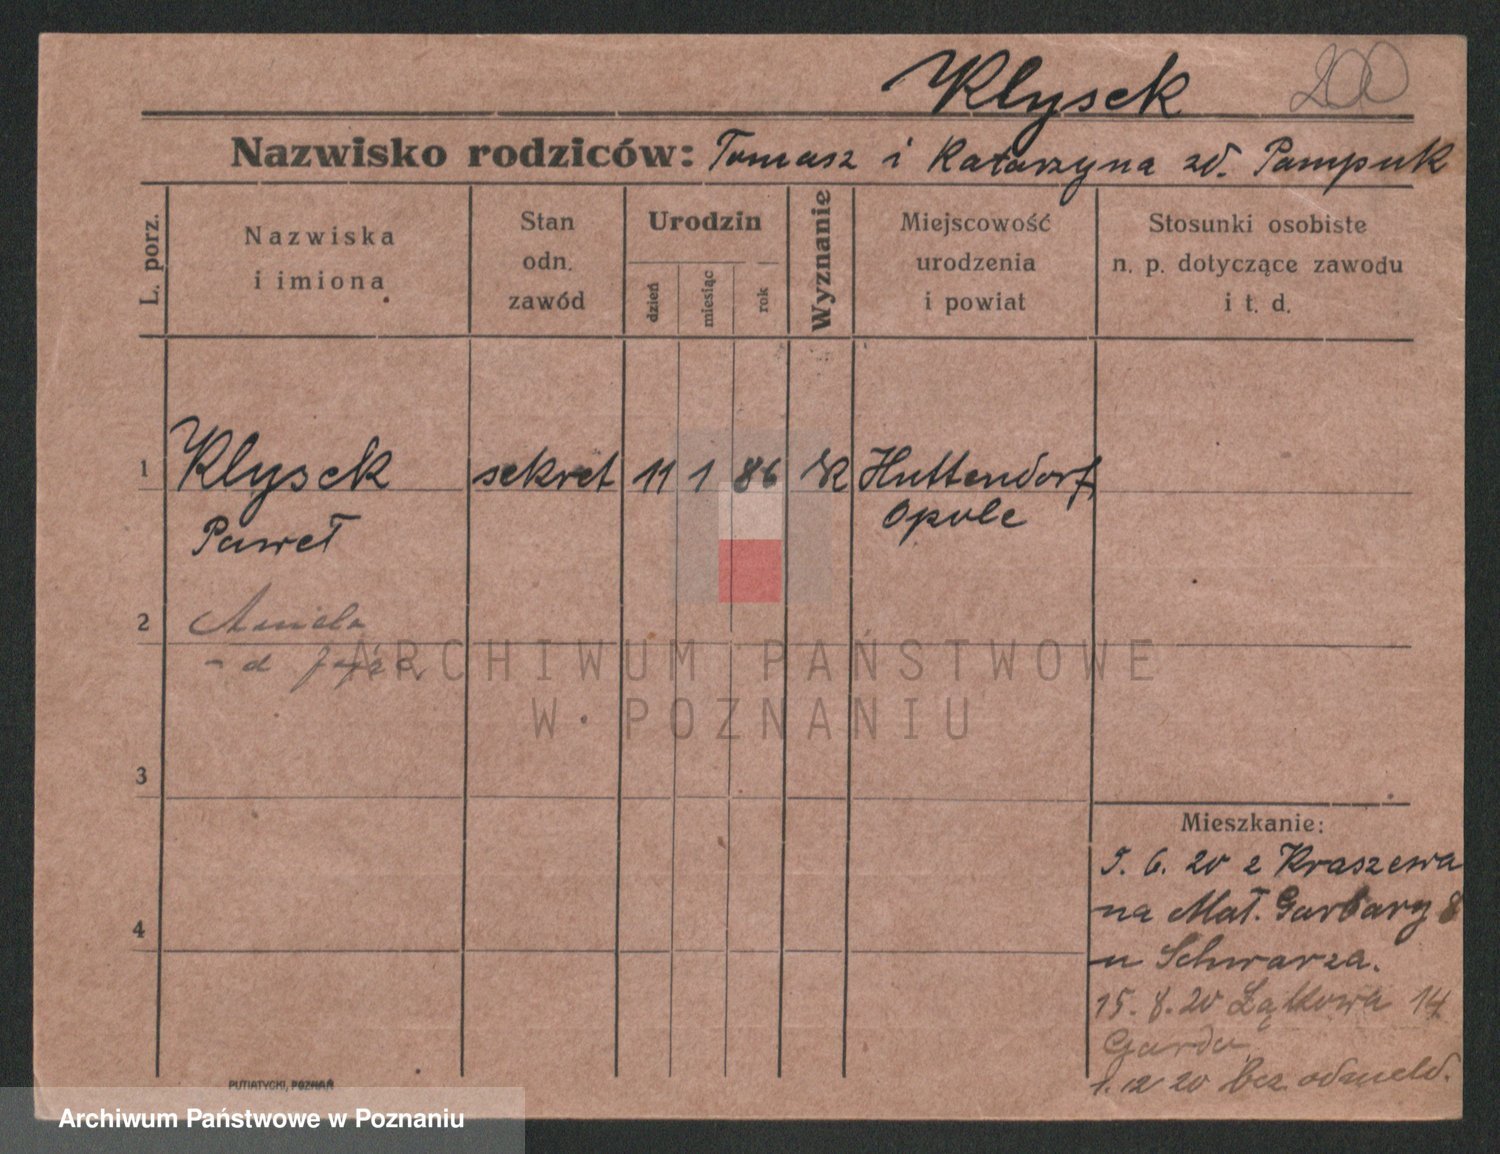 Klysek 200
Nazwisko rodziców: Tomasz i Katarzyna zd. Pampuk
L. porz.
Nazwiska
i imiona
Stan
odn.
zawód
Urodzin
dzień
miesiąc
rok
Wyznanie
Miejscowość
urodzenia
i powiat
Stosunki osobiste
n. p. dotyczące zawodu
i t. d.
1 Klysek sekret 11 1 86 Huttendorf
Paweł Opole
2 Aniela
- d
ARCHIWUM PAŃSTWOWE
W POZNANIU
3
Mieszkanie:
5. 6. 20 z Kraszewa
na Mał. Garbary 8
4
u Schwarza.
15. 8. 20 Łąkowa 14
1. 12 20 bez odmeld.
PUTIATYCKI, POZNAŃ
Archiwum Państwowe w Poznaniu